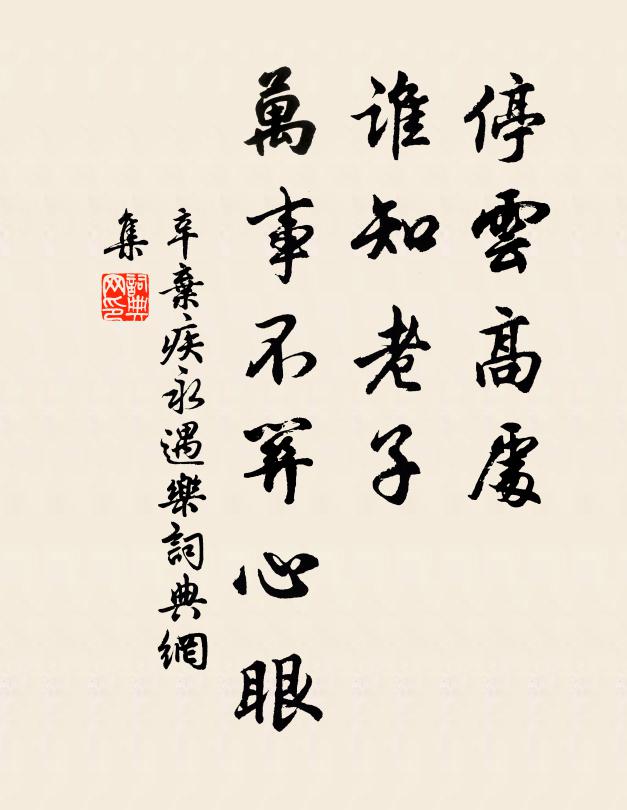 停雲髙處
誰知老子
萬事不關心眼
辛棄疾永遇樂詞典網
集
詞典
网印